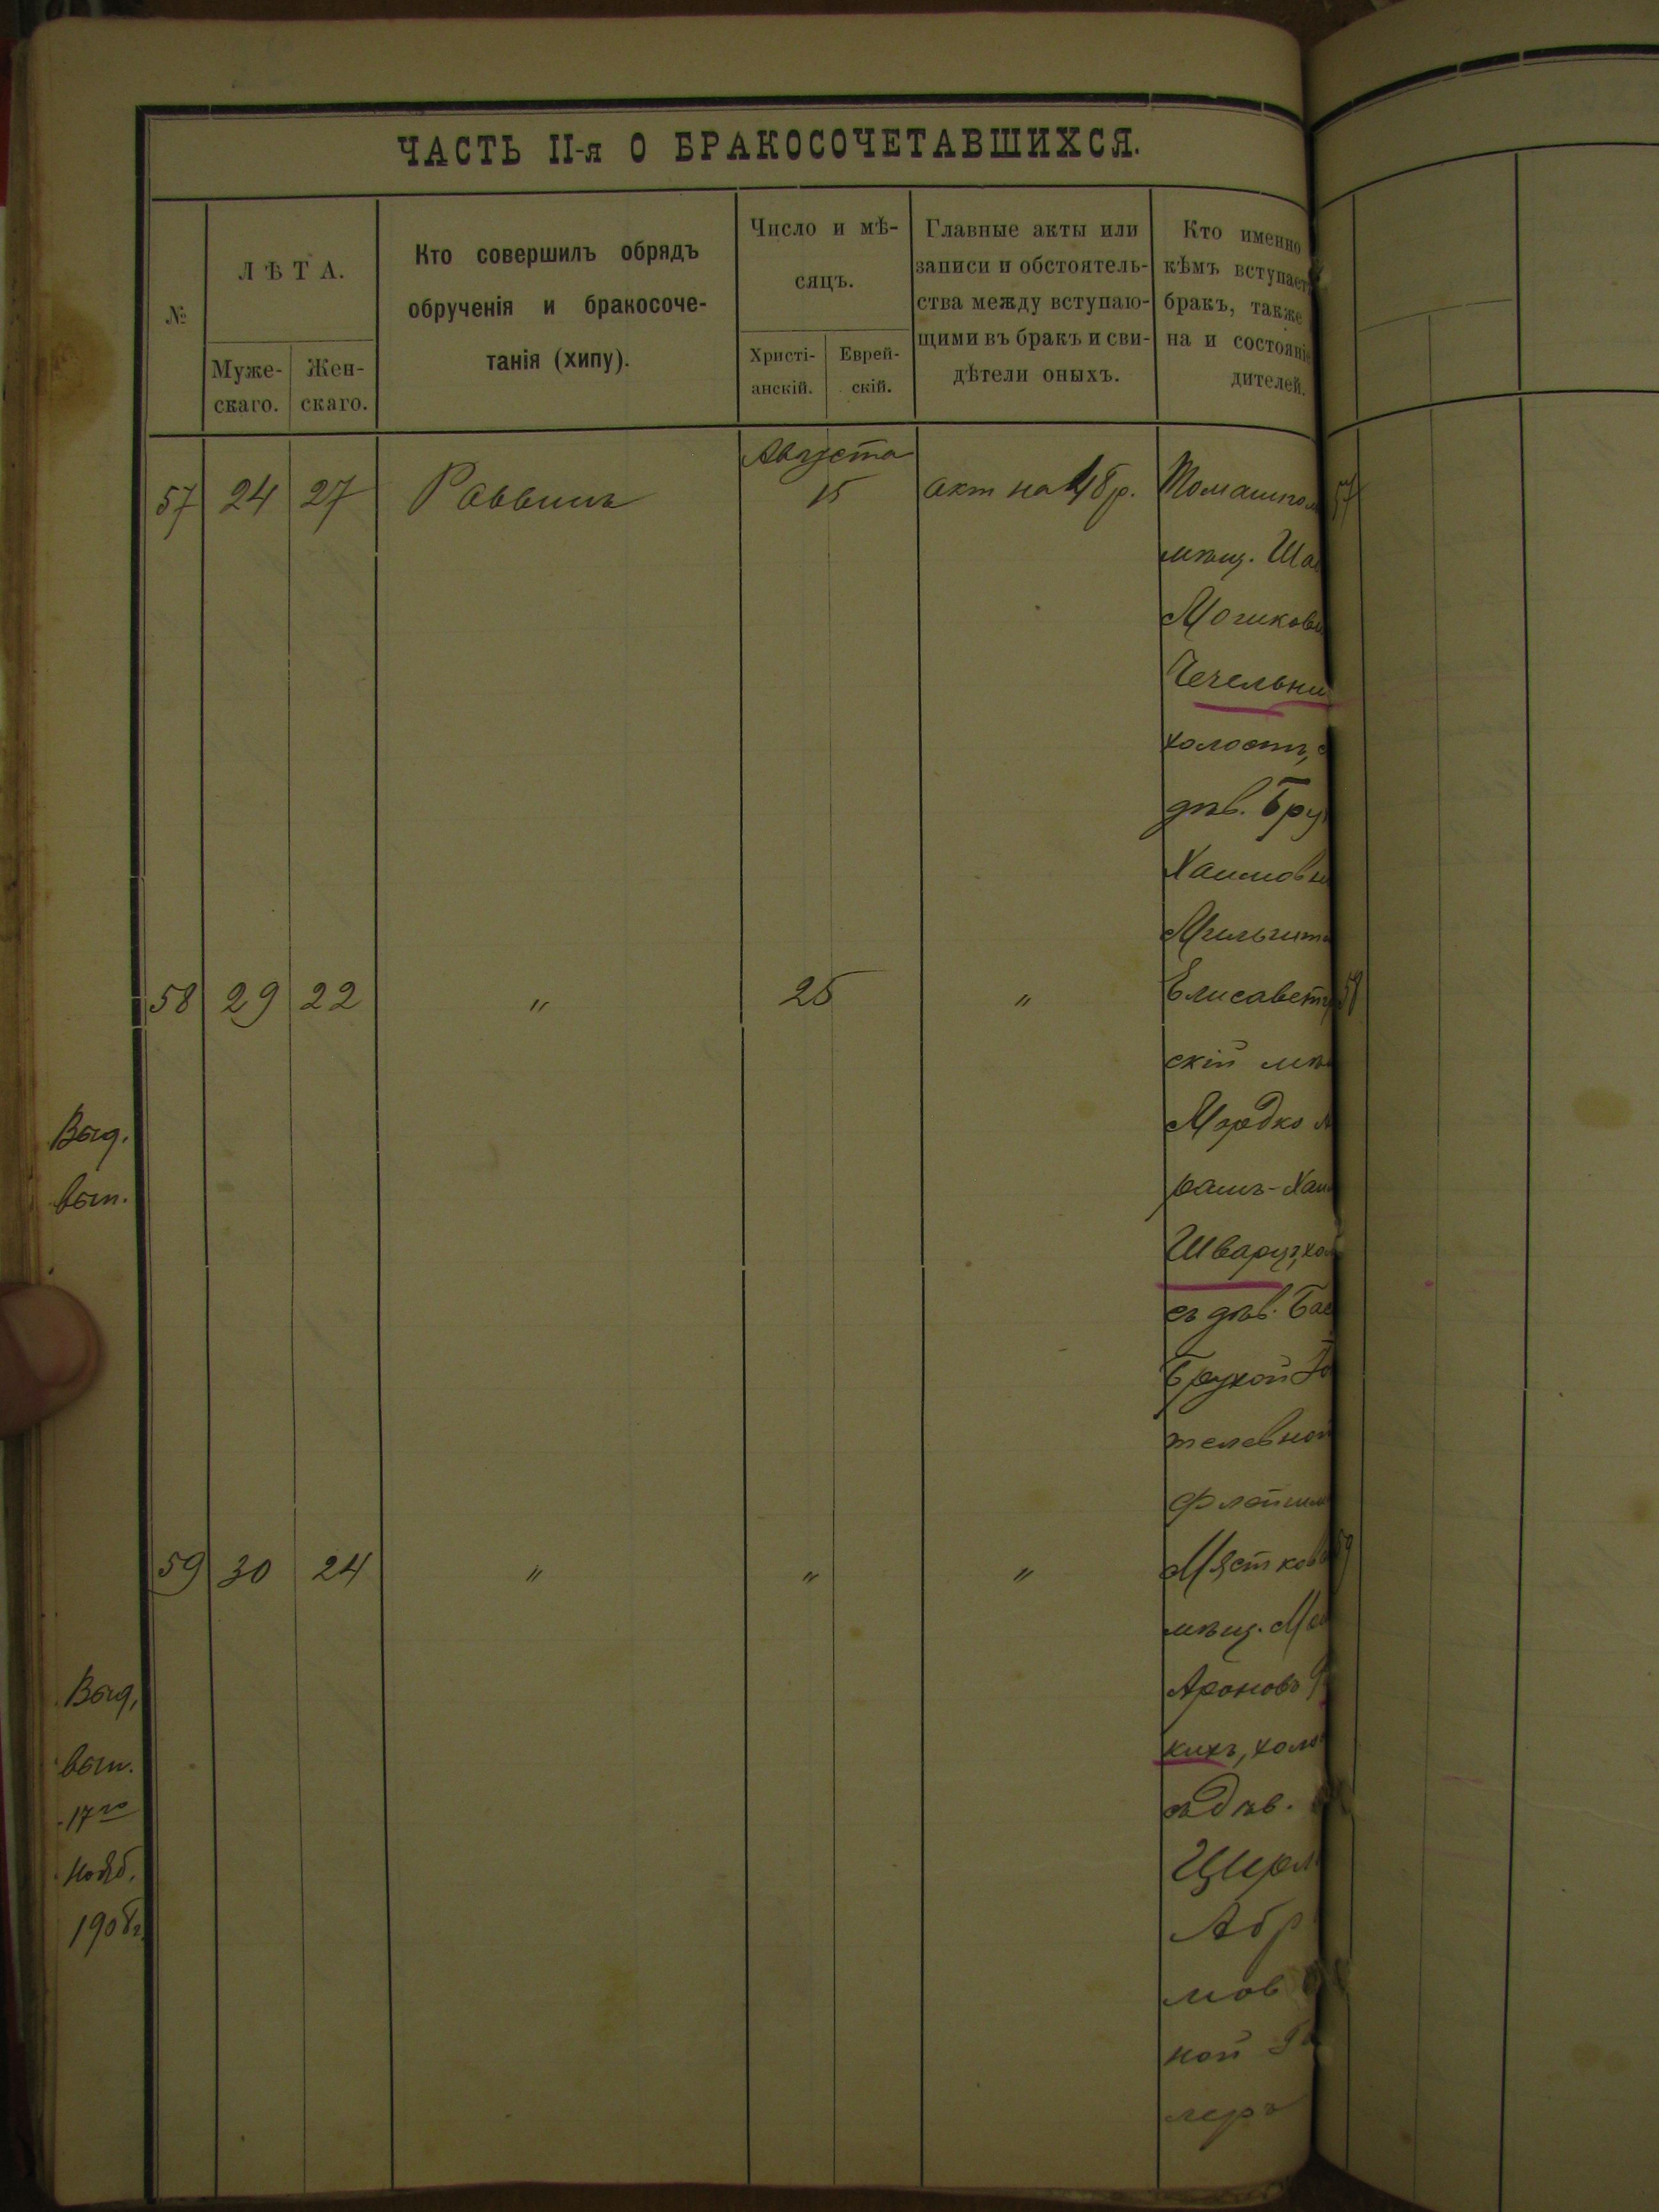 ЧАСТЬ II-я О БРАКОСОЧЕТАВШИХСЯ.
№
ЛѢТА.
Муже-
скаго.
Жен-
скаго.
Кто совершилъ обрядъ
обрученія и бракосоче-
танія (хипу).
Число и мѣ-
сяцъ.
Христі-
анскій.
Еврей-
скій.
Главные акты или
записи и обстоятель-
ства между вступаю-
щими въ бракъ и сви-
дѣтели оныхъ.
Кто именно
кѣмъ вступает
бракъ, также
на и состояніе
дителей.
Августа
57 24 27 Раввинъ 15 акт на 48 р. Томашпол
57
мѣщ. Ша
Мошкови
Чечельни
холостъ, с
дѣв. Бру
Хаимовн
Мильгит
58 29 22 " 25 " Елисаветг
58
скій мѣ
Мордко А
рамъ-Хаи
Шварцъ, хол
съ дѣв. Бас
Брухой
телевной
Флейшм
59 30 24 " " " Мястков
59
мѣщ. Мо
Ароновъ
кихъ, холо
съ дѣв.
Цирл
Абр
мов
ной
леръ
Выд.
вып.
Выд,
вып.
17го
Нояб.
1908г.